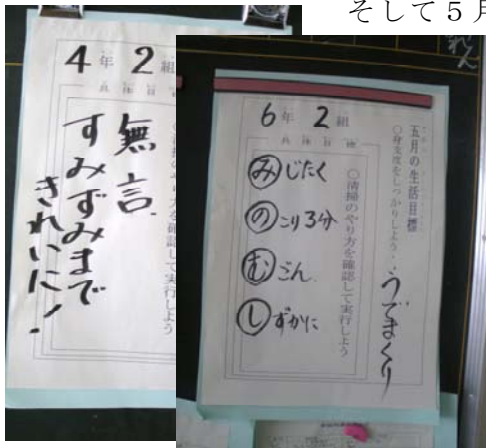 そして5月
4年 2組
具体目標
無言
すみずみまで
きれいに!
○清掃のやり方を確認して実行しよう
6年 2組
具体目標
五月の生活目標
○身支度をしっかりしよう・・うでまくり
○清掃のやり方を確認して実行しよう
みじたく
のこり3分
むごん
しずかに
れん